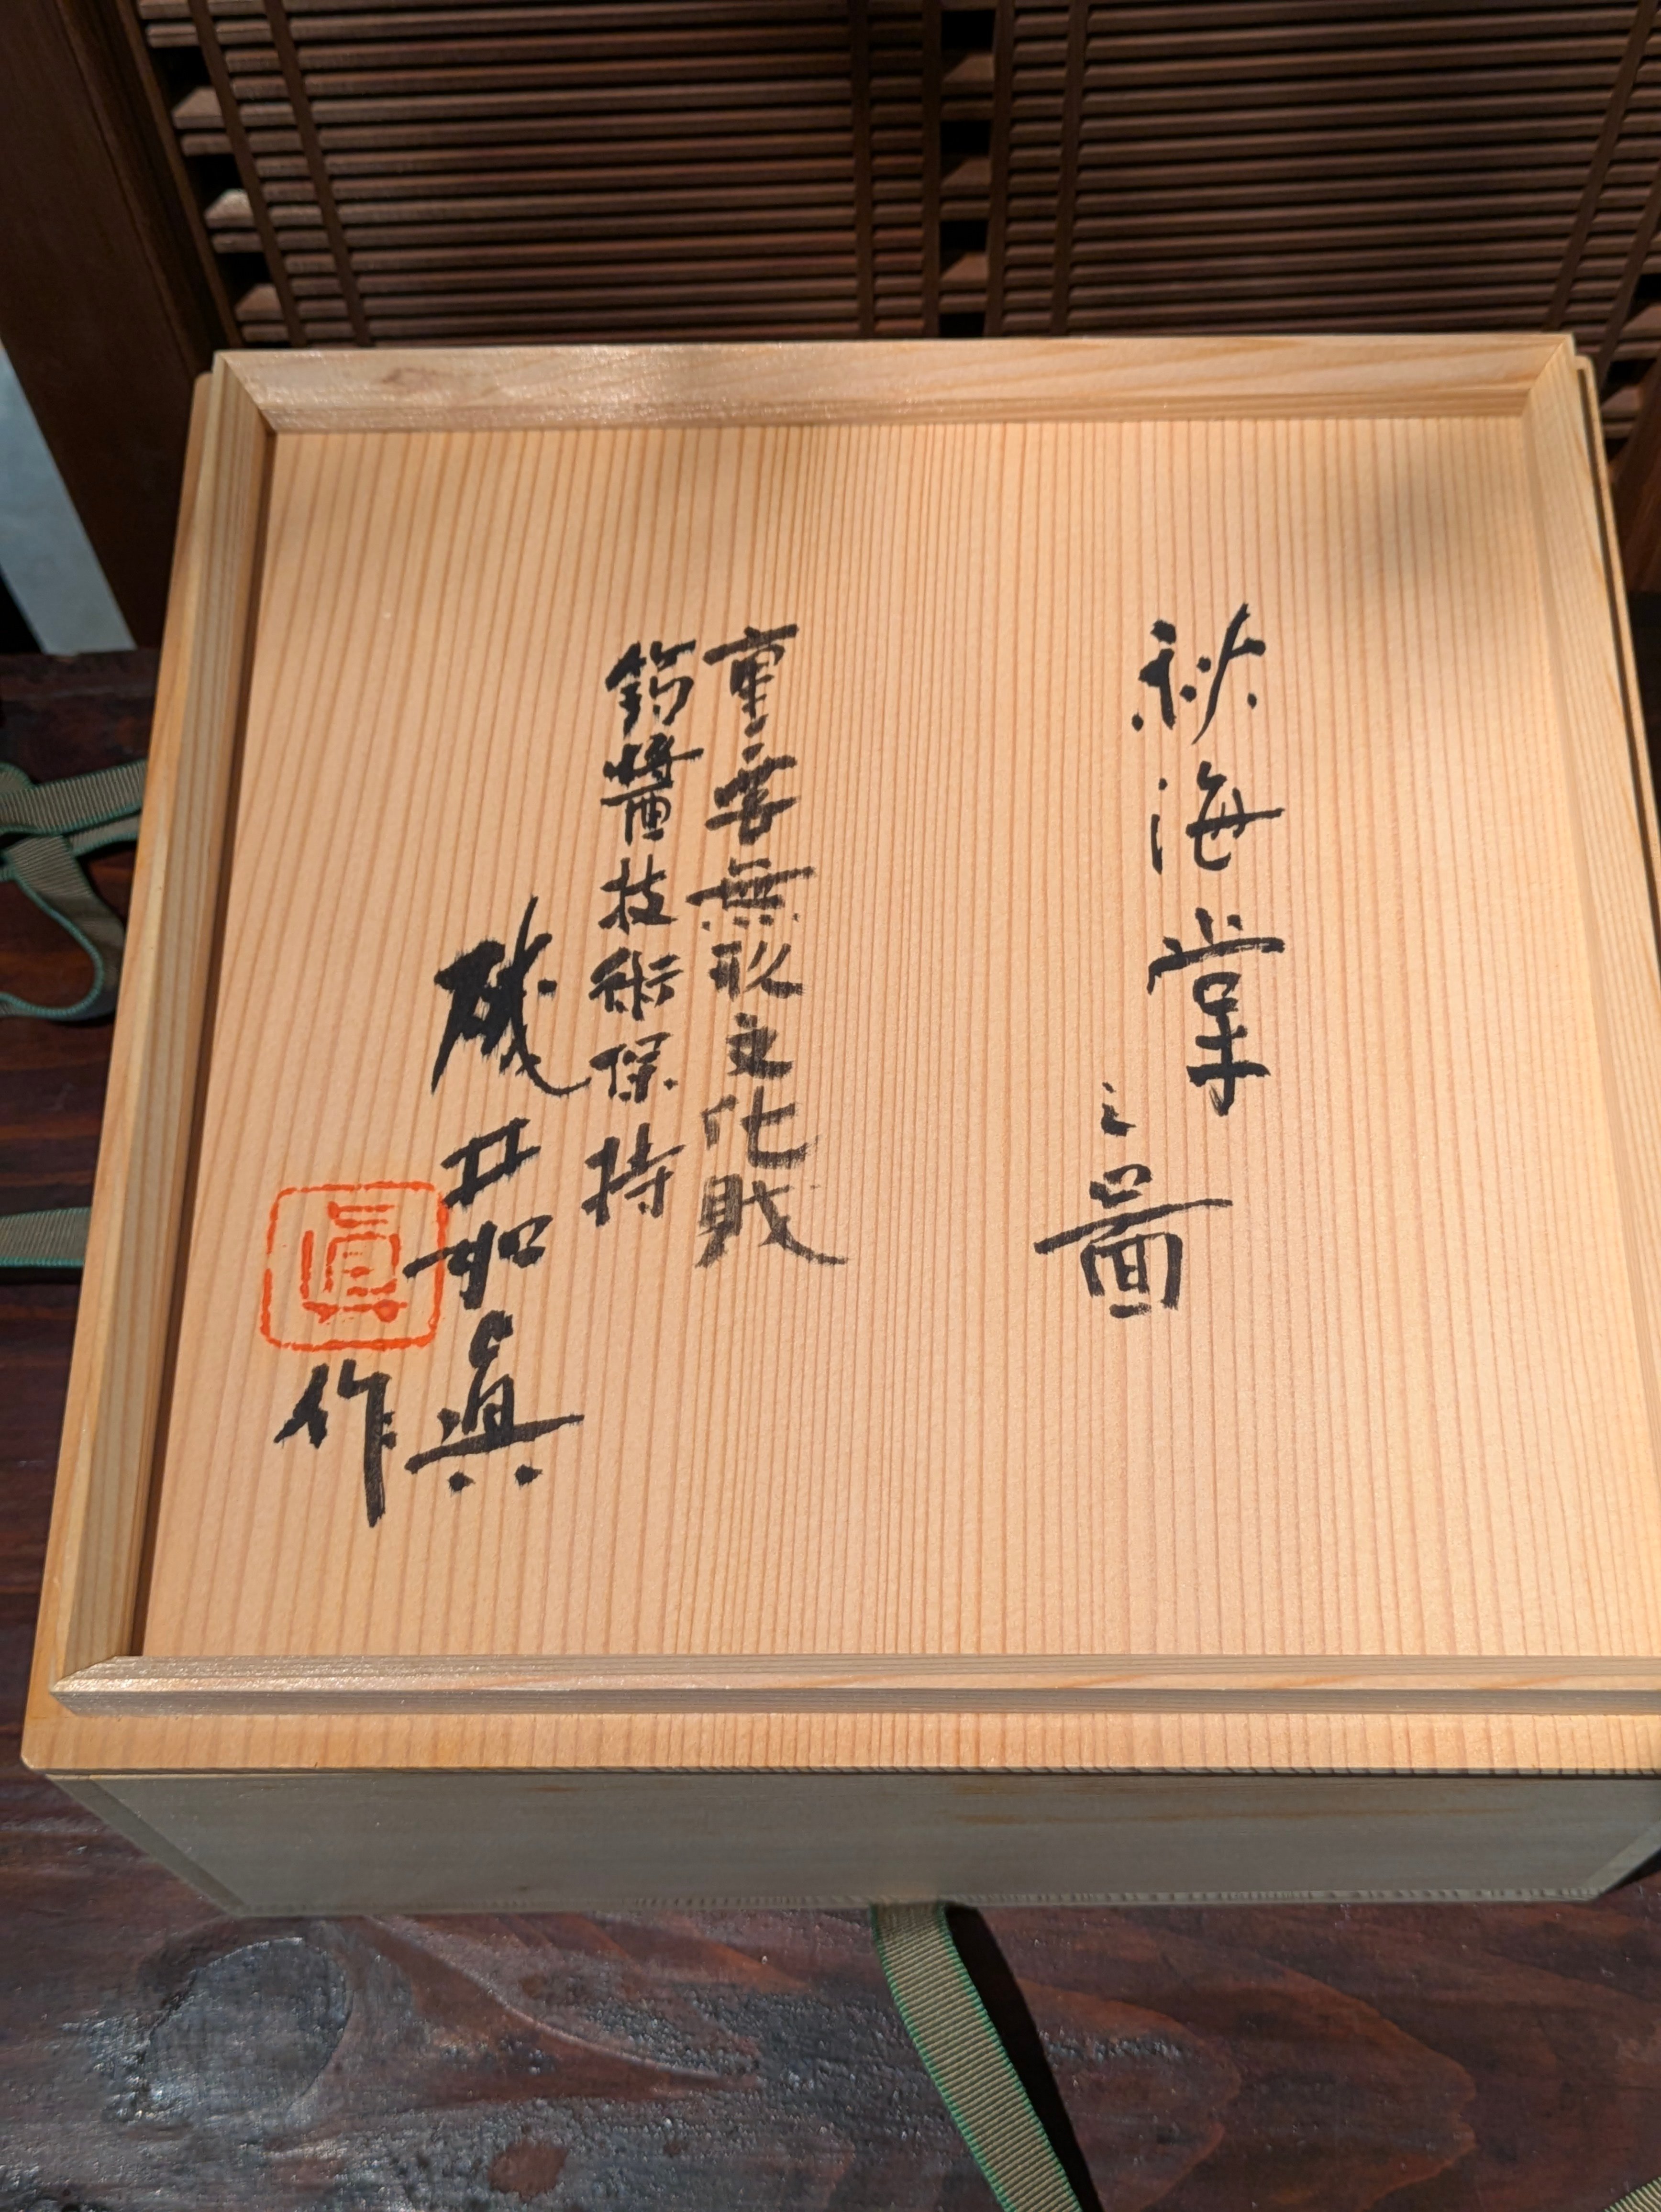 秋海棠
之圖
重要無形文化財
蒟醬技術保持
磯井如眞
作